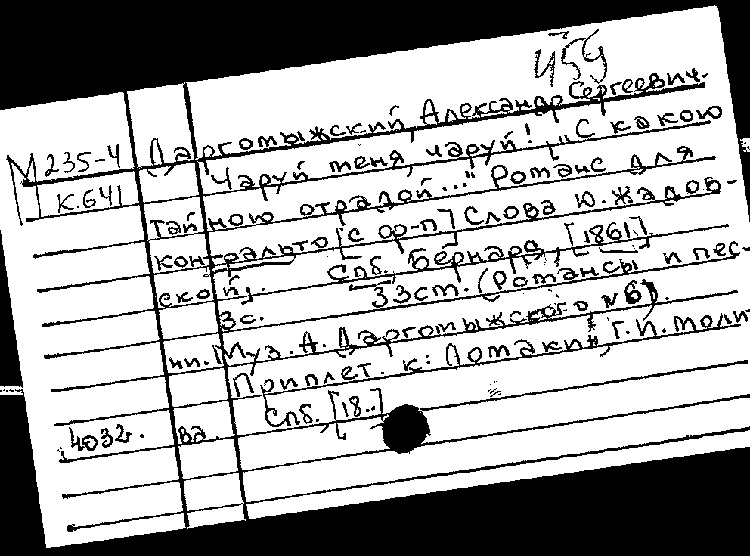 459
М 235-4 Даргомыжский, Александр Сергеевич.
К.641 Чаруй меня, чаруй! „С какою
тайною отрадой..." Романс для
контральто [с ф-п] Слова Ю. Жадов-
ской.
Спб., Бернард, [1861.]
3с. 33см. (Романсы и пес-
ни. Муз. А. Даргомыжского, №6).
Приплет. к: Ломакин, Г.И. Молит
ва. Спб. [18..]
4032г.